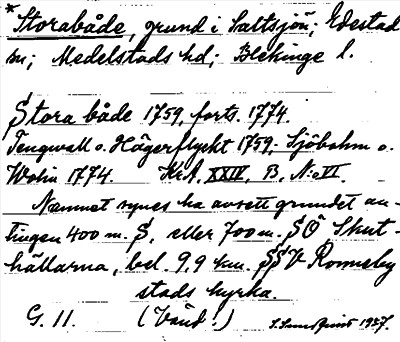 * Storabåde, grund i Saltsjön; Edestad
sn; Medelstads hd; Blekinge l.
Stora både 1759, forts. 1774.
Tengwall o. Hägerflyckt 1759; Sjöbohm o.
Wolin 1774. KrA XXIV, B, N:o VI.
Namnet synes ha avsett grundet an-
tingen 400 m. S, eller 700 m. SO Skut-
hällarna, bel. 9,9 km. SSV Ronneby
stads kyrka.
G. 11. (Vänd!) 1927.